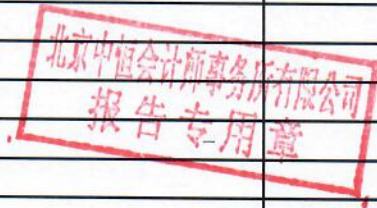 北京中恒会计师事务所有限公司
报告专用章